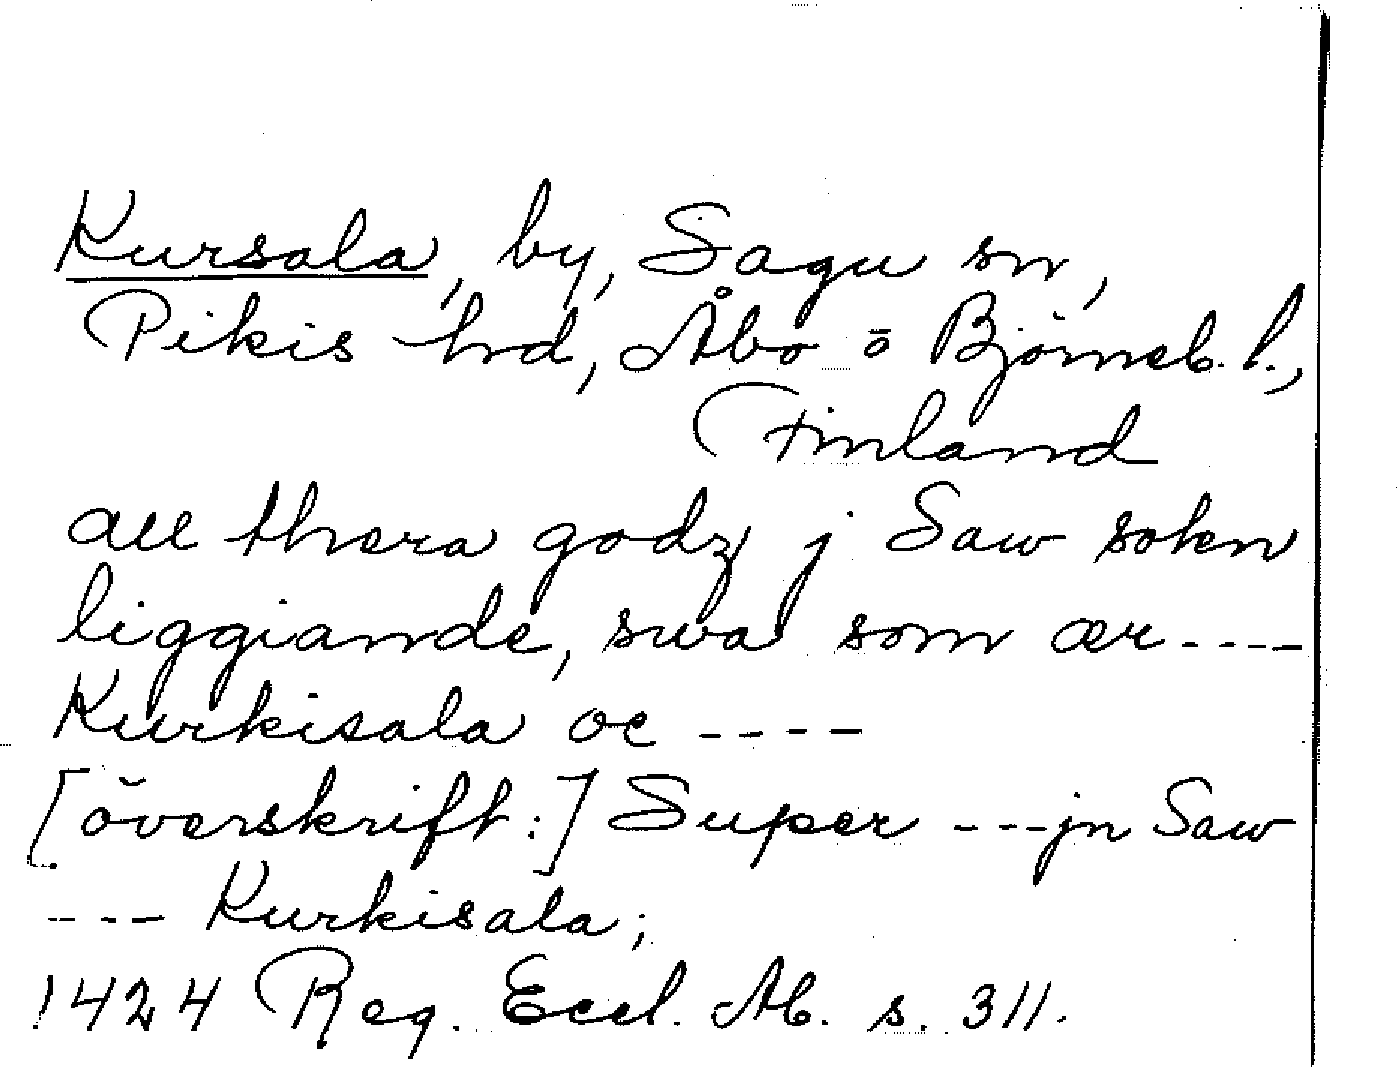 Kursala, by, Sagu sn,
Pikis hrd, Åbo o Björneb. l.,
Finland
all thera godz j Saw sokn
liggiande, swa som ær ----
Kurkisala oc ----
[överskrift:] Super ---jn Saw
---- Kurkisala;
1424 Reg. Eccl. Ab. s. 311.